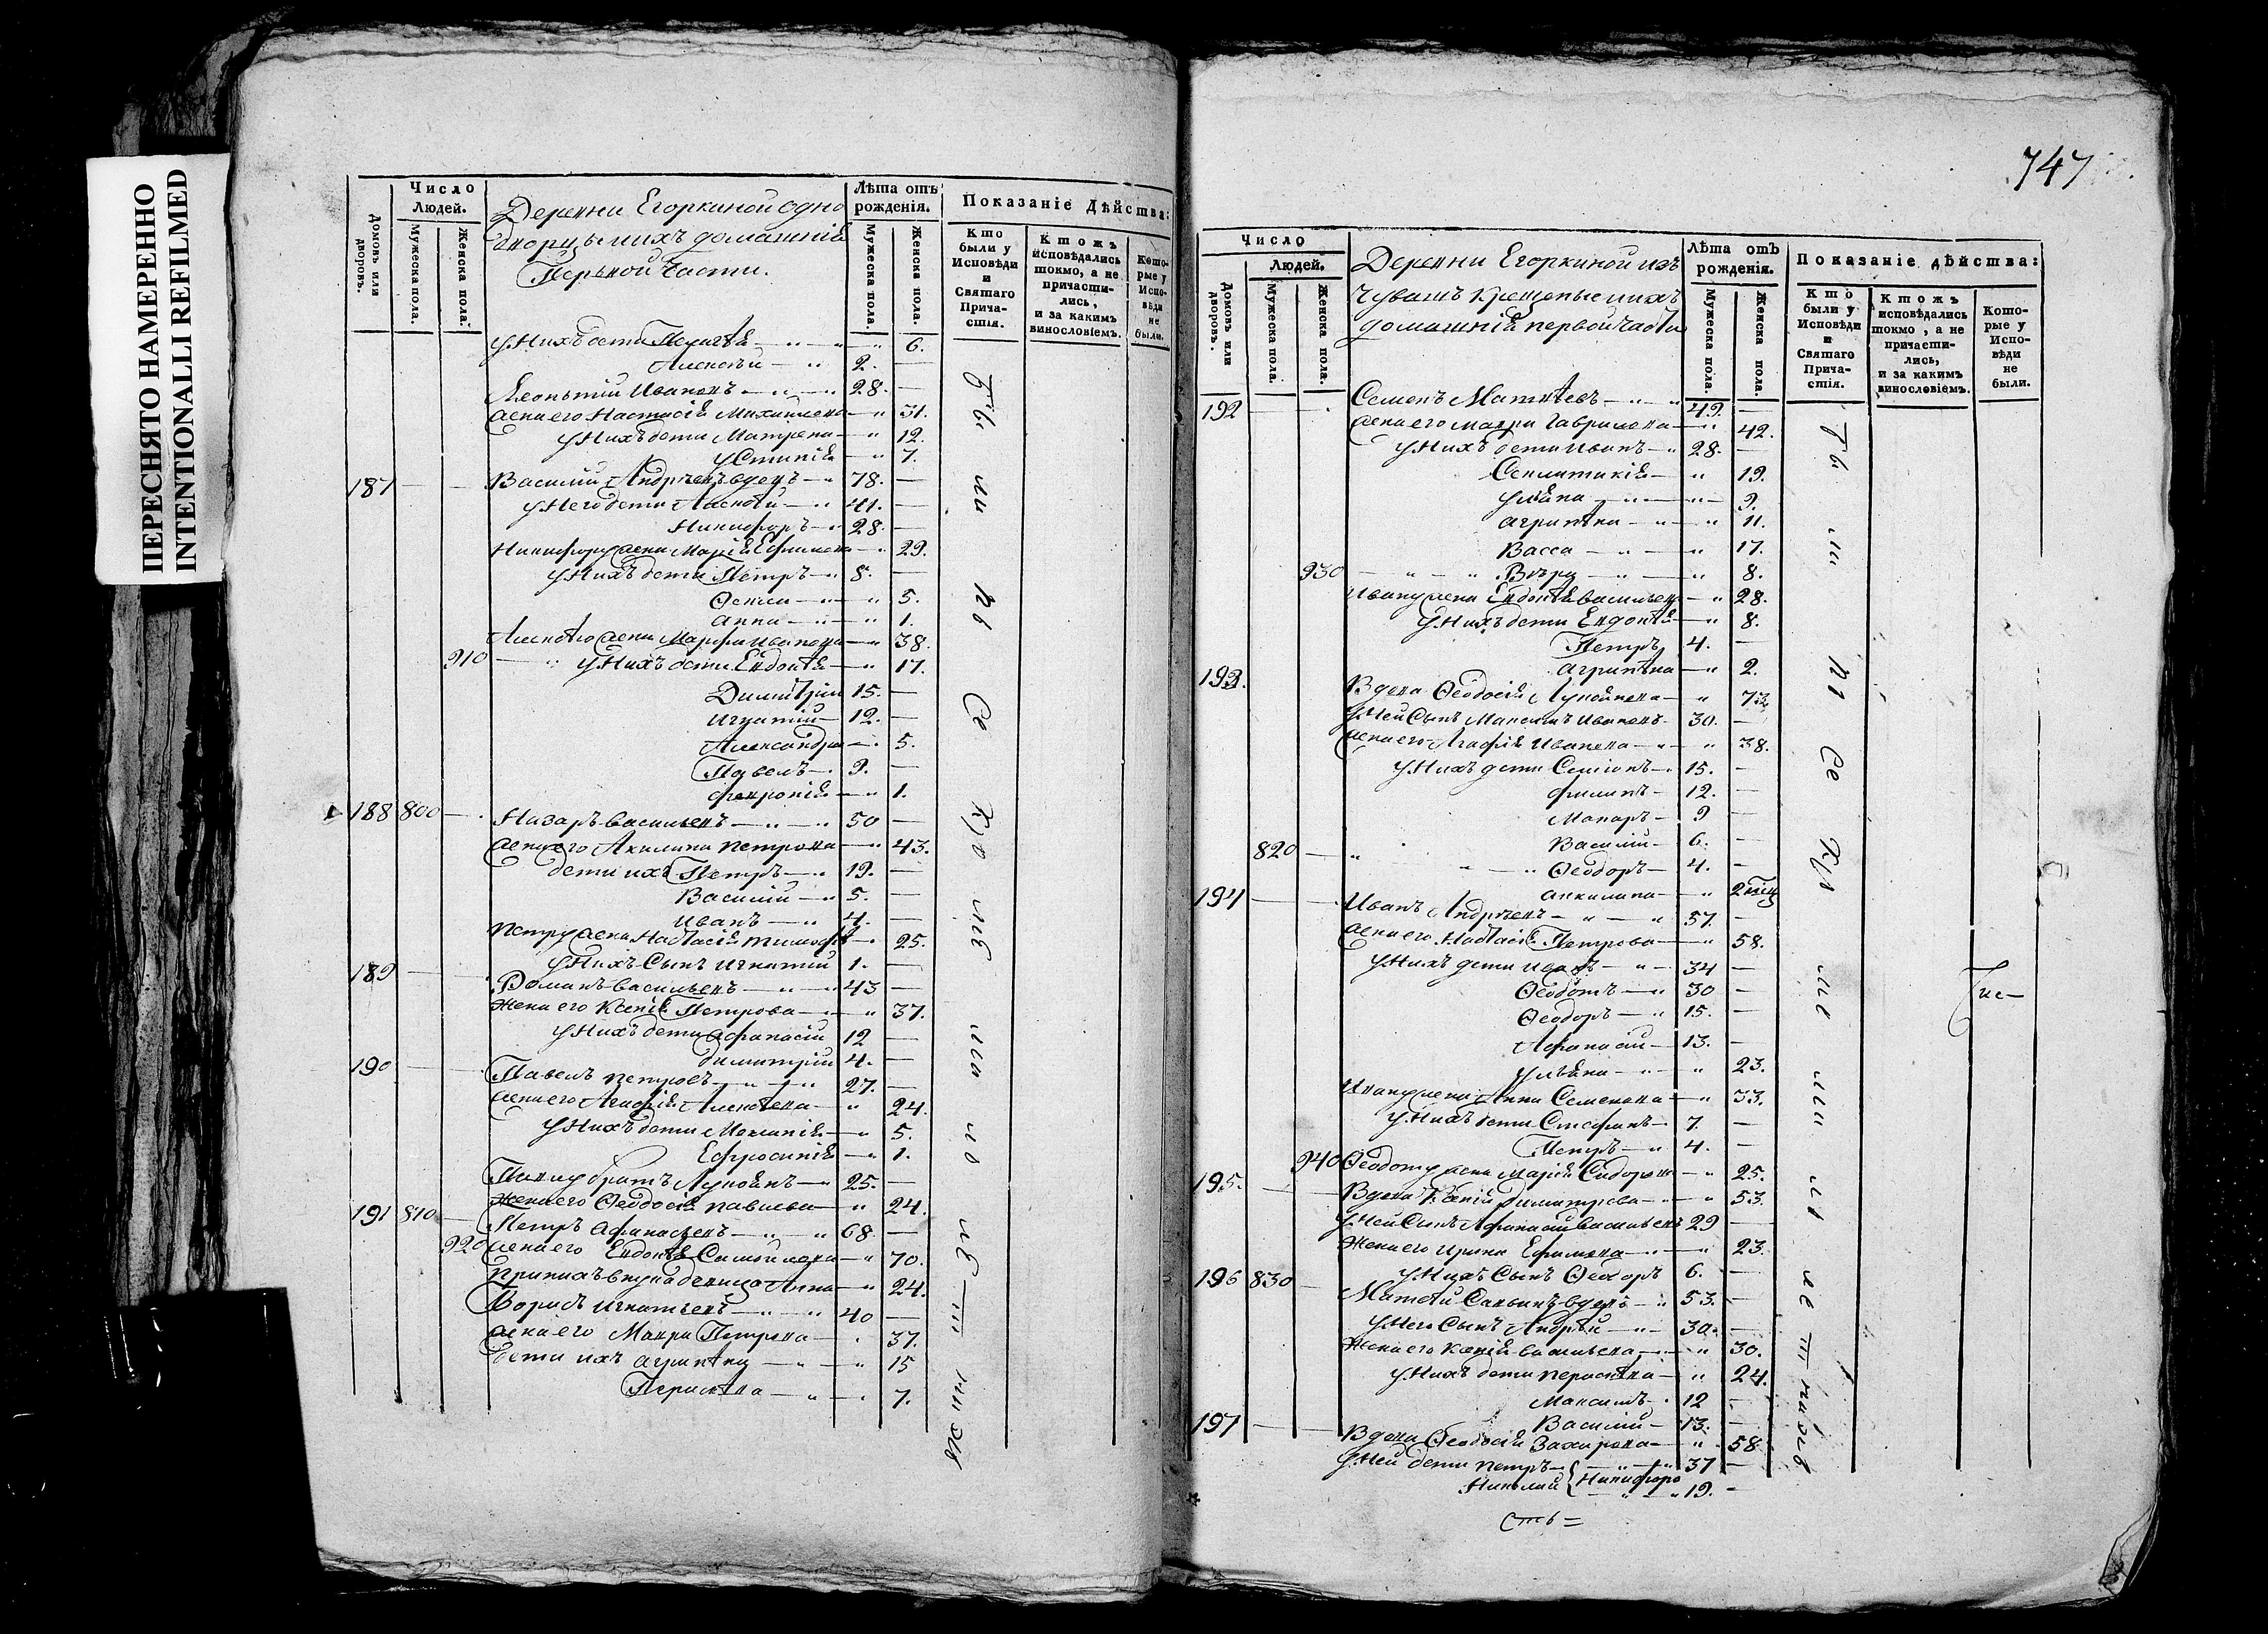 ПЕРЕСНЯТО НАМЕРЕННО
INTENTIONALLI REFILMED
Домовъ или дворовъ.
Число
Людей.
Мужеска пола.
Женска пола.
Деревни Егоркиной одно
дворцы ихъ домашнiе
Первой Части.
Лѣта отъ
рожденiя.
Мужеска пола.
Женска пола.
Показанiе Дѣйства:
Кто
были у
Исповѣди
и
Святаго
Прича-
стiя.
Ктожъ
исповѣдались
токмо, а не
причасти-
лись,
и за какимъ
винословiемъ.
Кото-
рые у
Испо-
вѣди
не
были.
У Нихъ дети Пелагѣя — 6.
Алексѣй — 2. —
Леонтiй Ивановъ — 28. —
жена его Настасiя Михайлова — 31.
У Нихъ дети Матрена — 12.
Устинiя — 7.
187 — — Василiй Андреевъ вдовъ — 78. —
У Него дети Алексѣй — 41. —
Никифоръ — 28. —
Никифору жена Марiя Ефимова — 29.
У Нихъ дети Петръ — 8. —
Ѳекла — 5.
Анна — 1.
Алексѣю жена Марфа Иванова — 38.
910 — У Нихъ дети Евдокѣя — 17.
Димитрiй 15. —
Игнатiй — 12. —
Александра — 5.
Павелъ — 9. —
Февронiя — 1.
188 800 — Назаръ Васильевъ — 50 —
жена его Акилина Петрова — 43.
дети ихъ Петръ — 19. —
Василiй — 5. —
Иванъ — 4. —
Петру жена Настасiя Тимофѣ — 25.
У Нихъ Сынъ Игнатiй 1. —
189 — — Романъ Васильевъ — 43 —
Жена его Ксенiя Петрова — 37.
У Нихъ дети Афанасiй 12 —
Димитрiй 4. —
190 — — Павелъ Петровъ — 27. —
жена его Агафiя Алексѣева — 24.
У Нихъ дети Меланiя — 5.
Ефросинiя — 1.
Павлу братъ Лукоянъ — 25. —
Жена его Ѳеодосiя Павлова — 24.
191 810 — Петръ Афанасьевъ — 68 —
920 жена его Евдокѣя Самойлова — 70.
Прiимахъ внука девица Анна — 24.
Борисъ Игнатьевъ — 40 —
жена его Мавра Петрова — 37.
дети ихъ Агрипѣна — 15
Парасковѣя — 7.
747
Домовъ или дворовъ.
Число
Людей.
Мужеска пола.
Женска пола.
Деревни Егоркиной изъ
Чувашъ крещеные ихъ
домашнiе первой части
Лѣта отъ
рожденiя.
Мужеска пола.
Женска пола.
Показанiе дѣйства:
Кто
были у
Исповѣди
и
Святаго
Прича-
стiя.
Ктожъ
исповѣдались
токмо, а не
причасти-
лись,
и за какимъ
винословiемъ.
Кото-
рые у
Испо-
вѣди
не
были.
192 — — Семенъ Матвѣевъ — 49. —
жена его Мавра Гаврилова — 42.
У Нихъ дети Иванъ — 28. —
19.
Ульяна — 9.
Агрипѣна — 11.
Васса — 17.
930 — Вѣра — 8.
Ивану жена Евдокѣя Васильева — 28.
У Нихъ дети Евдокѣя — 8.
Петръ 4. —
Агрипѣна — 2.
193. Вдова Ѳеодосiя Лукоянова — 73
У Ней Сынъ Максимъ Ивановъ — 30. —
жена его Агафiя Иванова — 38.
У Нихъ дети Семiонъ — 15. —
Филипъ — 12. —
Макаръ — 9 —
Василiй — 6. —
820 — Ѳеодоръ — 4. —
Аккилина — 2 мец
194 — — Иванъ Андреевъ — 57. —
жена его Настасiя Петрова — 58.
У Нихъ дети Иванъ — 34 —
Ѳеодотъ — 30 —
Ѳеодоръ — 15. —
Афанасiй — 13. —
Ульяна — 23.
Ивану жена Анна Семенова — 33.
У Нихъ дети Стефанъ — 7. —
Петръ — 4. —
940 Ѳеодоту жена Марiя Сидорова — 25.
195. — — Вдова Ксенiя Димитрева — 53.
У Ней Сынъ Афанасiй Васильевъ 29 —
Жена его Ирина Ефимова — 23.
У Нихъ Сынъ Ѳеодоръ 6. —
196 830 — Матвѣй Савинъ вдовъ — 53. —
У Него Сынъ Андрѣй — 30. —
Жена его Ксенiя Васильева — 30.
У Нихъ дети Парасковѣя — 24.
Максимъ — 12 —
Василiй — 13. —
197 — — Вдова Ѳеодосiя Захарова — 58
У Ней дети Петръ — 37 —
Николай { Никифоро — 19. —